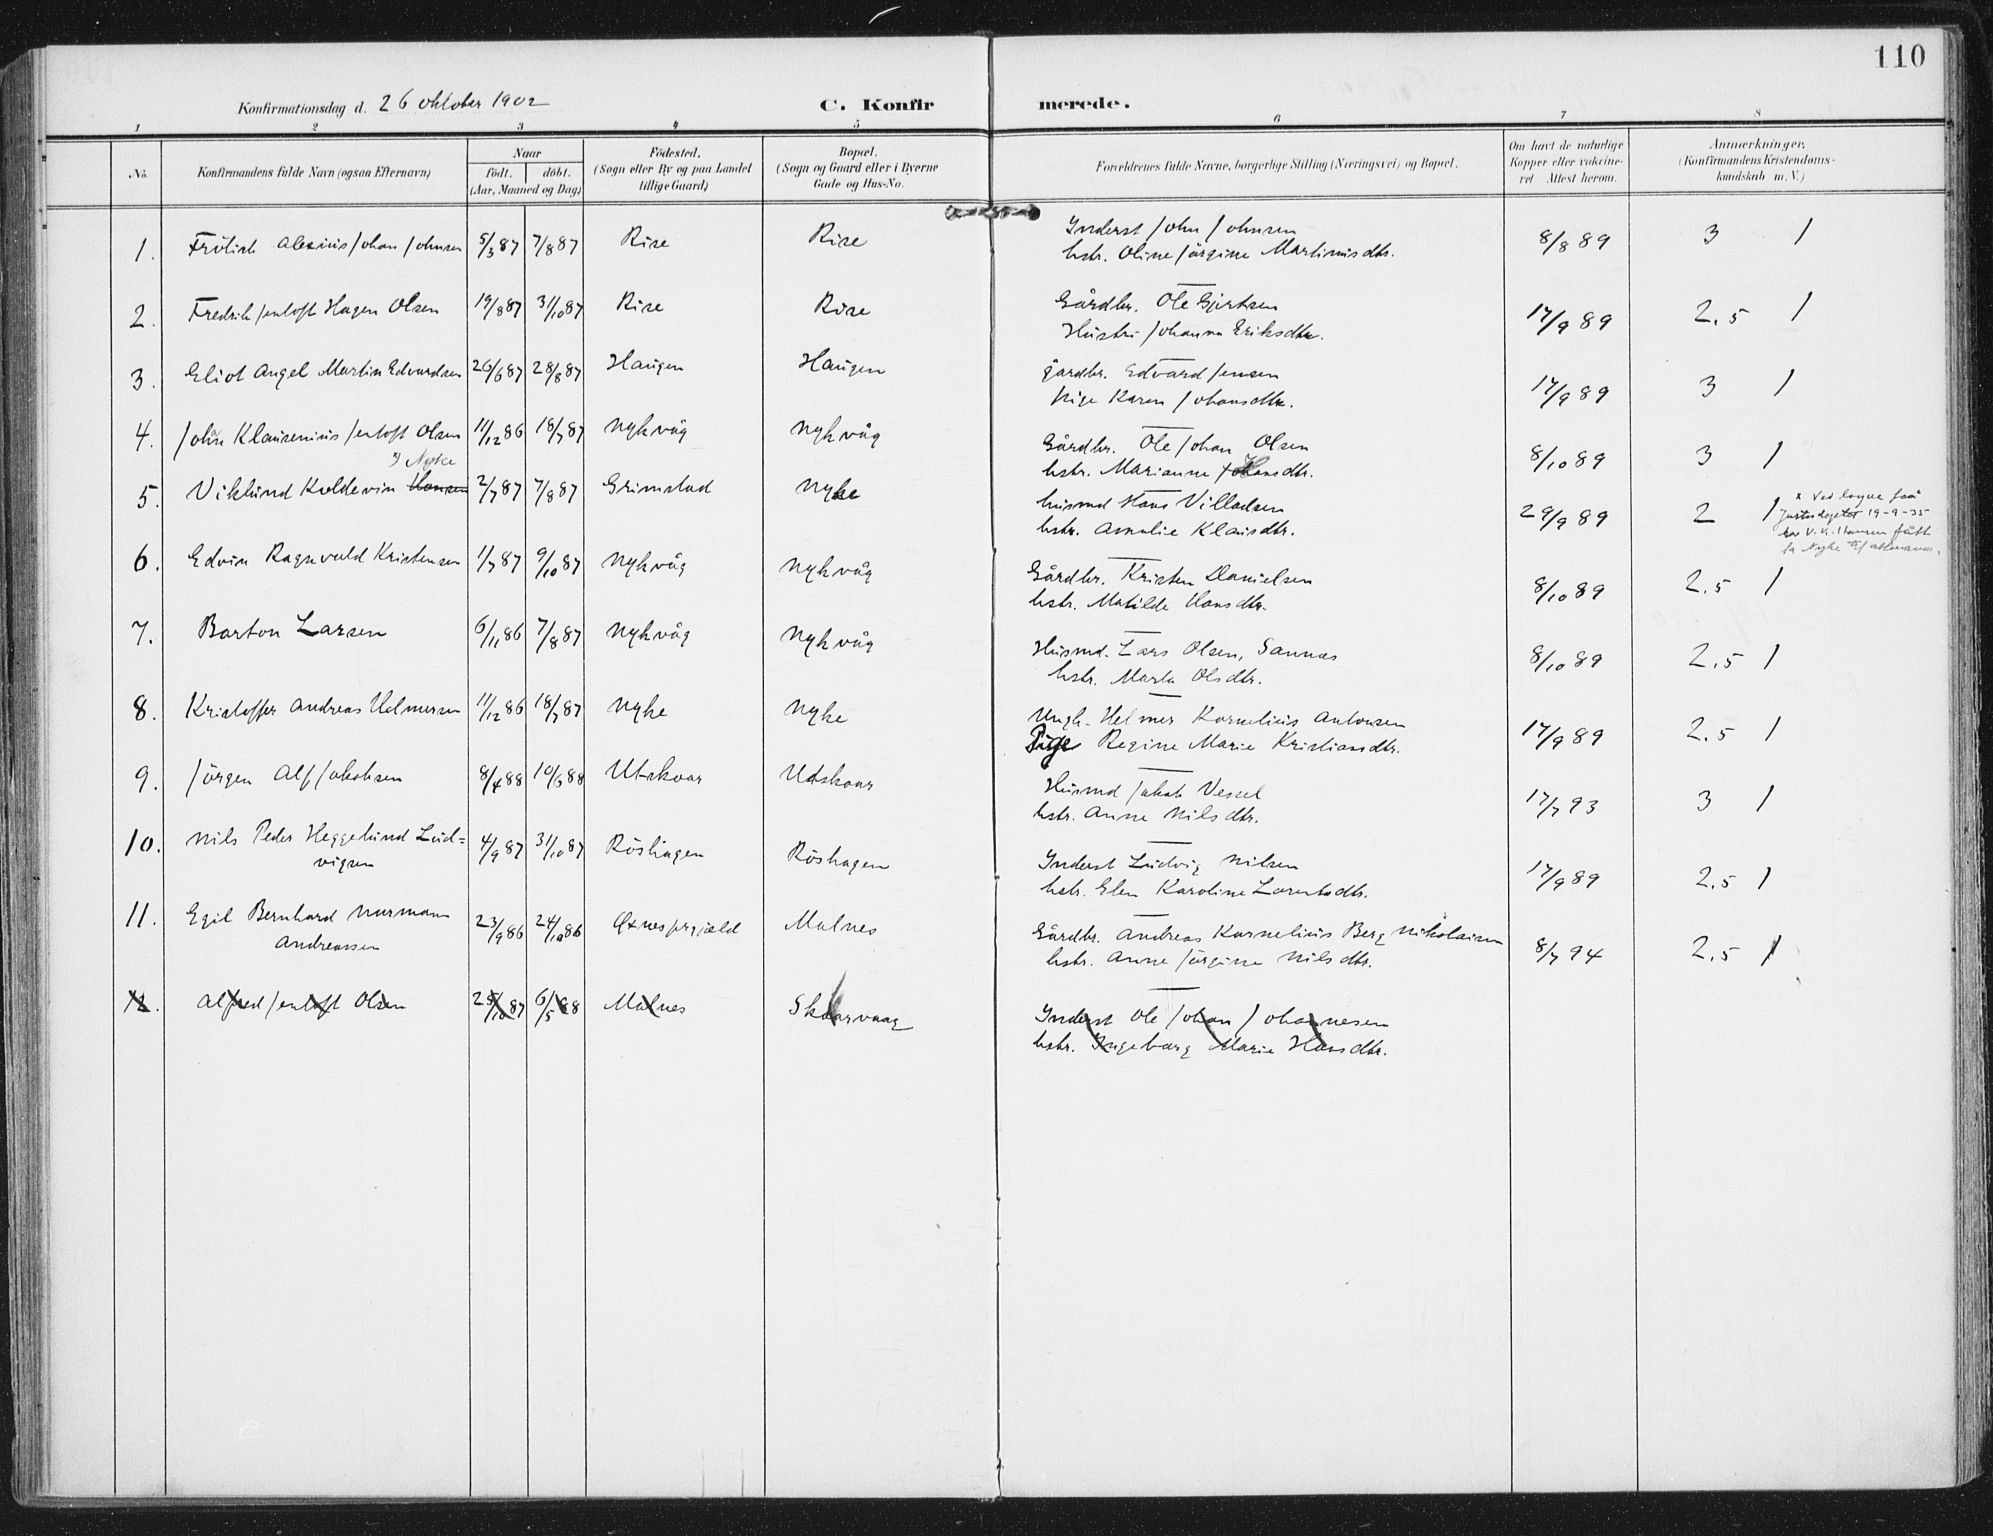 110
Konfirmationsdag d. 26 oktober 1902 C. Konfirmerede.
1 2 3 4 5 6 7 8
No. Konfirmandens fulde Navn (ogsaa Efternavn) Naar födt. döbt. (Aar, Maaned og Dag) Födested. (Sogn eller By og paa Landet tillige Gaard) Bopæl. (Sogn og Gaard eller i Byerne Gade og Hus-No. Forældrenes fulde Navne, borgerlige Stilling (Næringsvei) og Bopæl. Om havt de naturlige Kopper eller vakcineret Attest herom. Anmærkninger, (Konfirmandens Kristendomskundskab m. V.)
1. Frölich Alexius Johan Johnsen 5/3 87 7/8 87 Rise Rise Inderst John Johnsen 8/8 89 3 1
hstr. Oline Jörgine Martinusdtr.
2. Fredrik Jentoft Hagen Olsen 19/8 87 31/10 87 Rise Rise Gårdbr. Ole Gjertsen 17/9 89 2.5 1
Hustru Johanna Eriksdtr.
3. Eliot Angel Martin Edvardsen 26/6 87 28/8 87 Haugen Haugen gårdbr. Edvard Jensen 17/9 89 3 1
pige Karen Johansdtr.
4. Johan Klausenius Jentoft Olsen 11/12 86 18/7 87 Nykvåg Nykvåg Gårdbr. Ole Johan Olsen 8/10 89 3 1
hstr. Marianne Hansdtr.
x) Nyke
5. Viklund Koldevin Hansen 2/7 87 7/8 87 Grimstad Nyke husmd Hans Villadsen 29/9 89 2 1
hstr. Amalie Klausdtr.
x Ved lovgne fra
Justisdeptet 19-9-35
har V. K. Hansen fått
ta Nyke
6. Edvin Ragnvald Kristensen 1/7 87 9/10 87 Nykvåg Nykvåg Gårdbr. Kristen Danielsen 8/10 89 2.5 1
hstr. Matilde Hansdtr.
7. Barton Larsen 6/11 86 7/8 87 Nykvåg Nykvåg Husmd. Lars Olsen, Sannas 8/10 89 2.5 1
hstr. Marta Olsdtr.
8. Kristoffer Andreas Helmersen 11/12 86 18/7 87 Nyke Nyke Ungk. Helmer Kornelius Antonsen 17/9 89 2.5 1
Pige Regine Marie Kristiansdtr.
9. Jörgen Alf Jakobsen 8/4 88 10/6 88 Utskoar Utskoar Husmd Jakob Vessel 17/7 93 3 1
hstr. Anne Nilsdtr.
10. Nils Peder Heggelund Lud=
vigsen 4/9 87 31/10 87 Röshagen Röshagen Inderst Ludvig Nilsen 17/9 89 2.5 1
hstr. Elen Karoline Lorentsdtr.
11. Egil Bernhard Normann
Andreassen 23/9 86 24/10 86 Øxnes prgjæld Malnes Gårdbr. Andreas Kornelius Berg Nikolaisen 8/7 94 2.5 1
hstr. Anne Jörgine Nilsdtr.
12. Alfred Jentoft Olsen 25/10 87 6/5 88 Malnes Skaarvaag Inderst Ole Johan Johannesen
hstr. Ingeborg Marie Hansdtr.